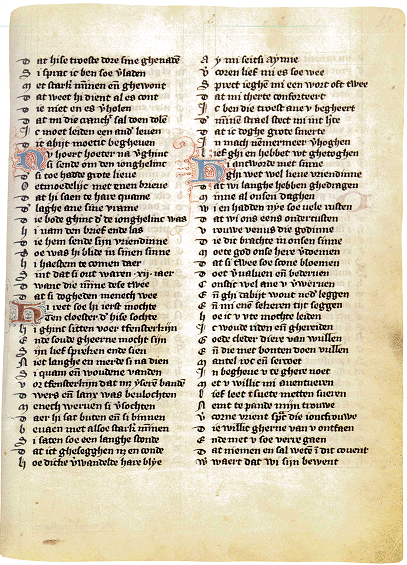 Dat hise troeste dore sine ghenade
Si sprac ic ben soe v̄laden
Met starker m̄inen en̄ ghewont
Dat weet hi dient al es cont
Die niet en es v̄holen
Dat mi die cranch̄ sal doen dolen
Ic moet leiden een and̄ leuen
Dit abijt moetic begheuen
Nv hoert hoeter na v̄ghinc
Si sende om den ionghelinc
D̄ si toe hadde grote lieue
Oetmoedelijc met enen brieue
Dat hi saen te hare quame
D̄ laghe ane sine vrame
Die bode ghinc d̄ de ionghelinc was
Hi nam den brief ende las
Die hem sende sijn vriendinne
Doe was hi blide in sinen sinne
Hi haestem te comen daer
Sint dat si out waren .xij. iaer
Dwanc die minne dese twee
Dat si dogheden menech wee
Hi reet soe hi ierst mochte
Ten cloester d̄ hise sochte
Hi ghinc sitten voer tfensterkijn
Ende soude gheerne mocht sijn
Sijn lief spreken ende sien
Niet langhe en merde si na dien
Si quam en̄ woudene vanden
Vor tfensterkijn dat m; yserē bandē
Dwers en̄ lanx was beulochten
Menech weruen si v̄sochten
Daer hi sat buten en̄ si binnen
Beuaen met alsoe stark̄ m̄inen
Si saten soe een langhe stonde
Dat ict ghesegghen n; en conde
Hoe dicke v̄wandelde hare blye
Ay mi seitsi aymi
V̄coren lief mi es soe wee
Sprect ieghē mi een wort oft twee
Dat mi therte conforteert
Ic ben die troest ane v begheert
D̄ m̄ine strael stect mi int h̄te
Dat ic doghe grote smerte
In mach nēmermeer v̄hoghen
Lief ghi en hebbet vut ghetoghen
Hi antworde met sinne
Ghi wet wel lieue vriendinne
Dat wi langhe hebben ghedragen
Minne al onsen daghen
Wi en hadden nye soe vele rusten
Dat wi ons eens ondercusten
Vrouwe venus die godinne
Die dit brachte in onsen sinne
Moete god onse here v̄doemen
Dat si twee soe scone bloemen
Doet v̄valuen en̄ bederuen
Constic wel ane v v̄weruen
En̄ ghi dabijt wout ned̄ leggen
En̄ mi enē sekerē tijt seggen
Hoe ic v vte mochte leiden
Ic woude riden en̄ ghereiden
Goede cleder diere van wullen
En̄ die met bonten doen vullen
Mantel roc en̄ sercoet
In begheue v te ghere noet
Met v willic mi auentueren
Lief leet tsuete metten sueren
Nemt te pande mijn trouwe
V̄corne vrient sp̄c die ioncfrouwe
Die willic gherne van v ontfaen
Ende met v soe verre gaen
Dat niemen en sal wetē ī dit couent
Werwaert dat wi sijn bewent